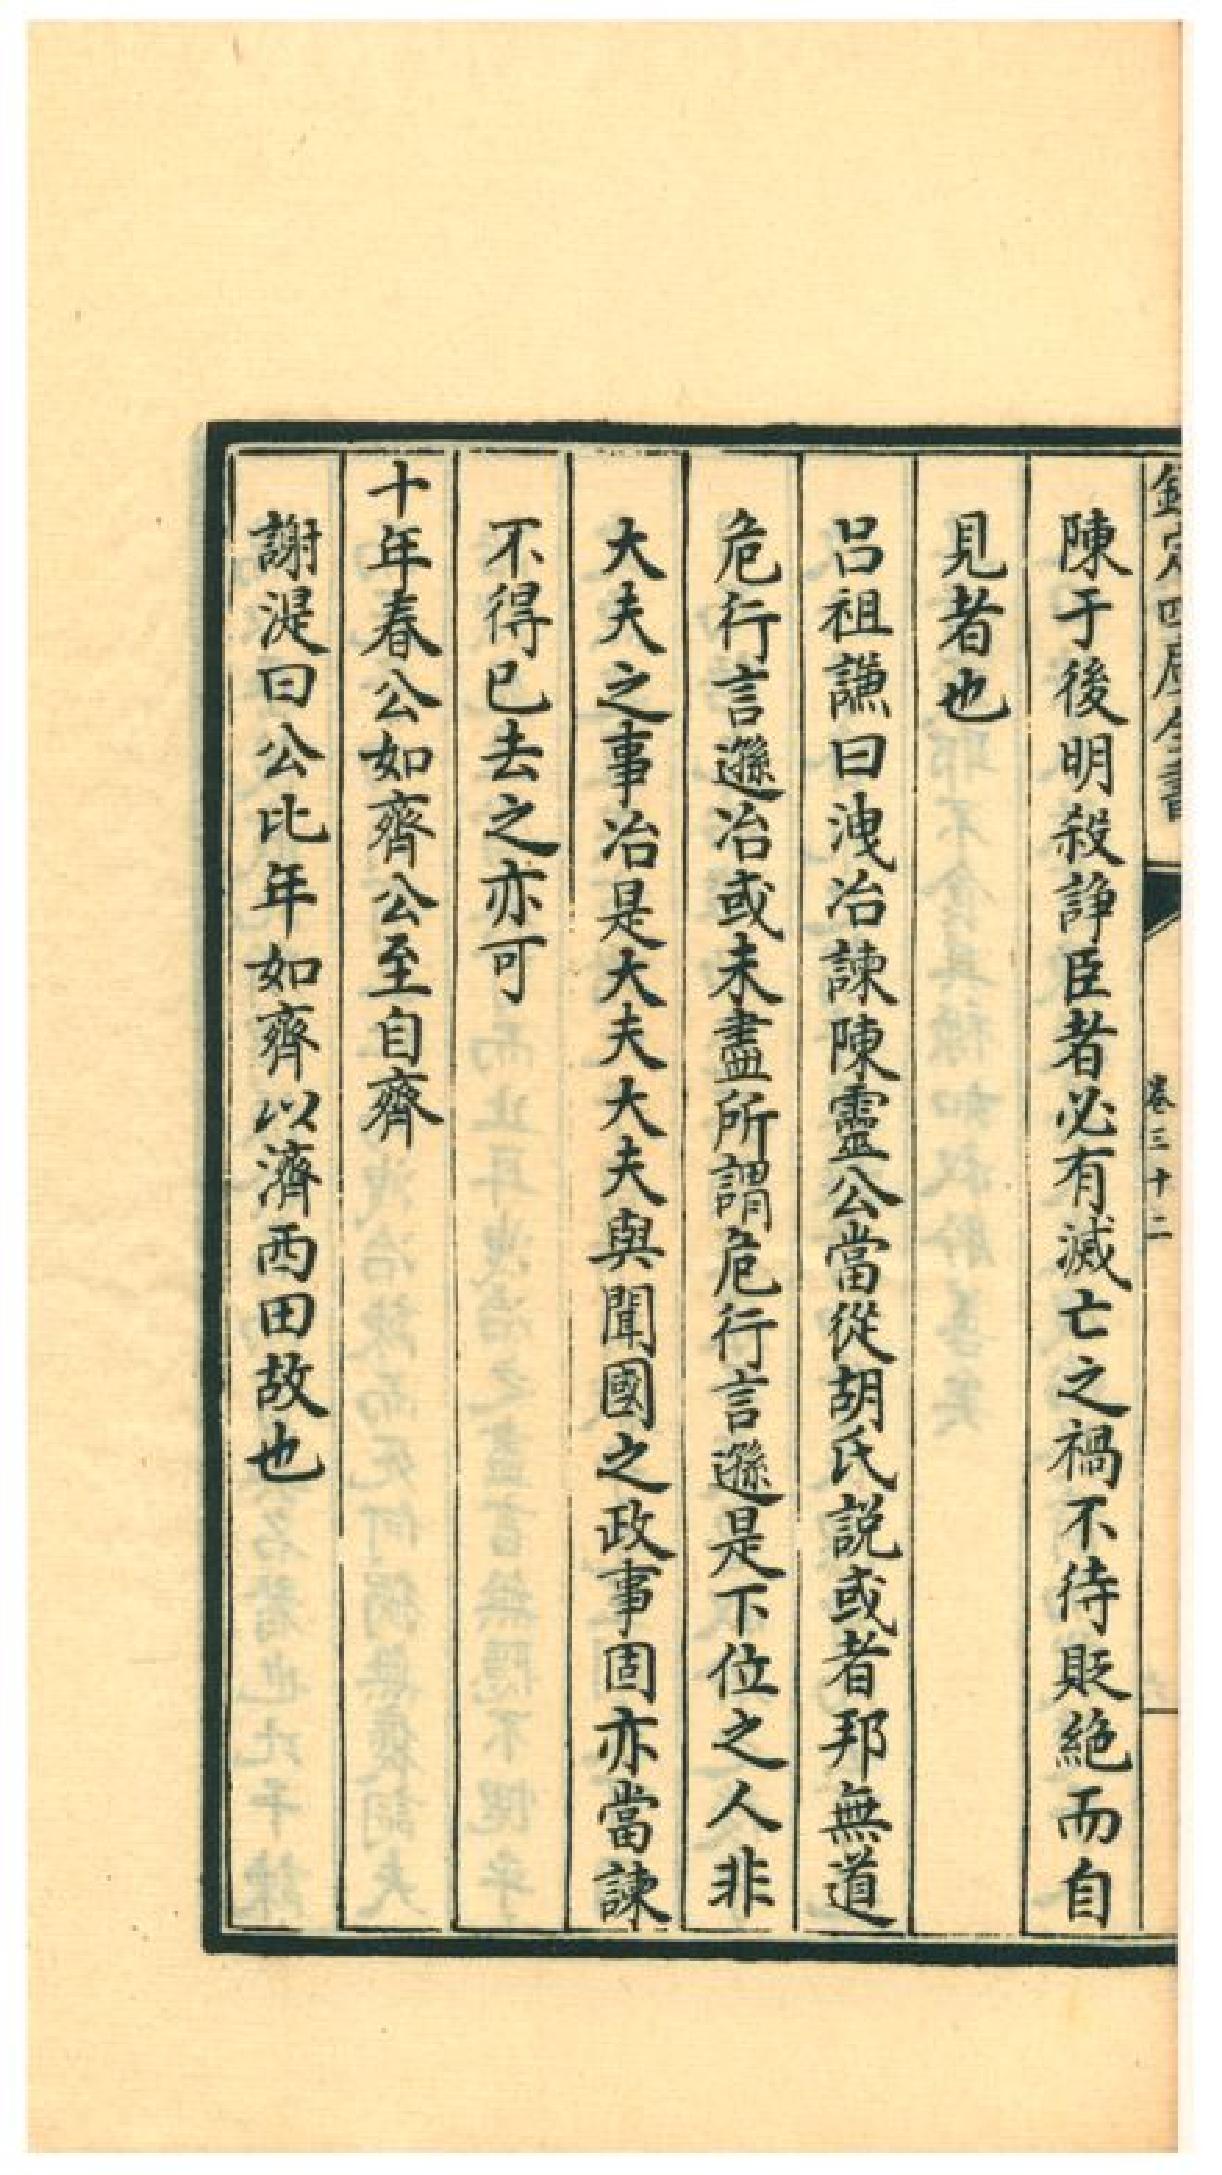 欽定四庫全書
卷三十二
陳于後明殺諍臣者必有滅亡之禍不待貶絶而自
見者也
呂祖謙曰洩冶諫陳靈公當從胡氏説或者邦無道
危行言遜冶或未盡所謂危行言遜是下位之人非
大夫之事冶是大夫大夫與聞國之政事固亦當諫
不得已去之亦可
十年春公如齊公至自齊
謝湜曰公比年如齊以濟西田故也